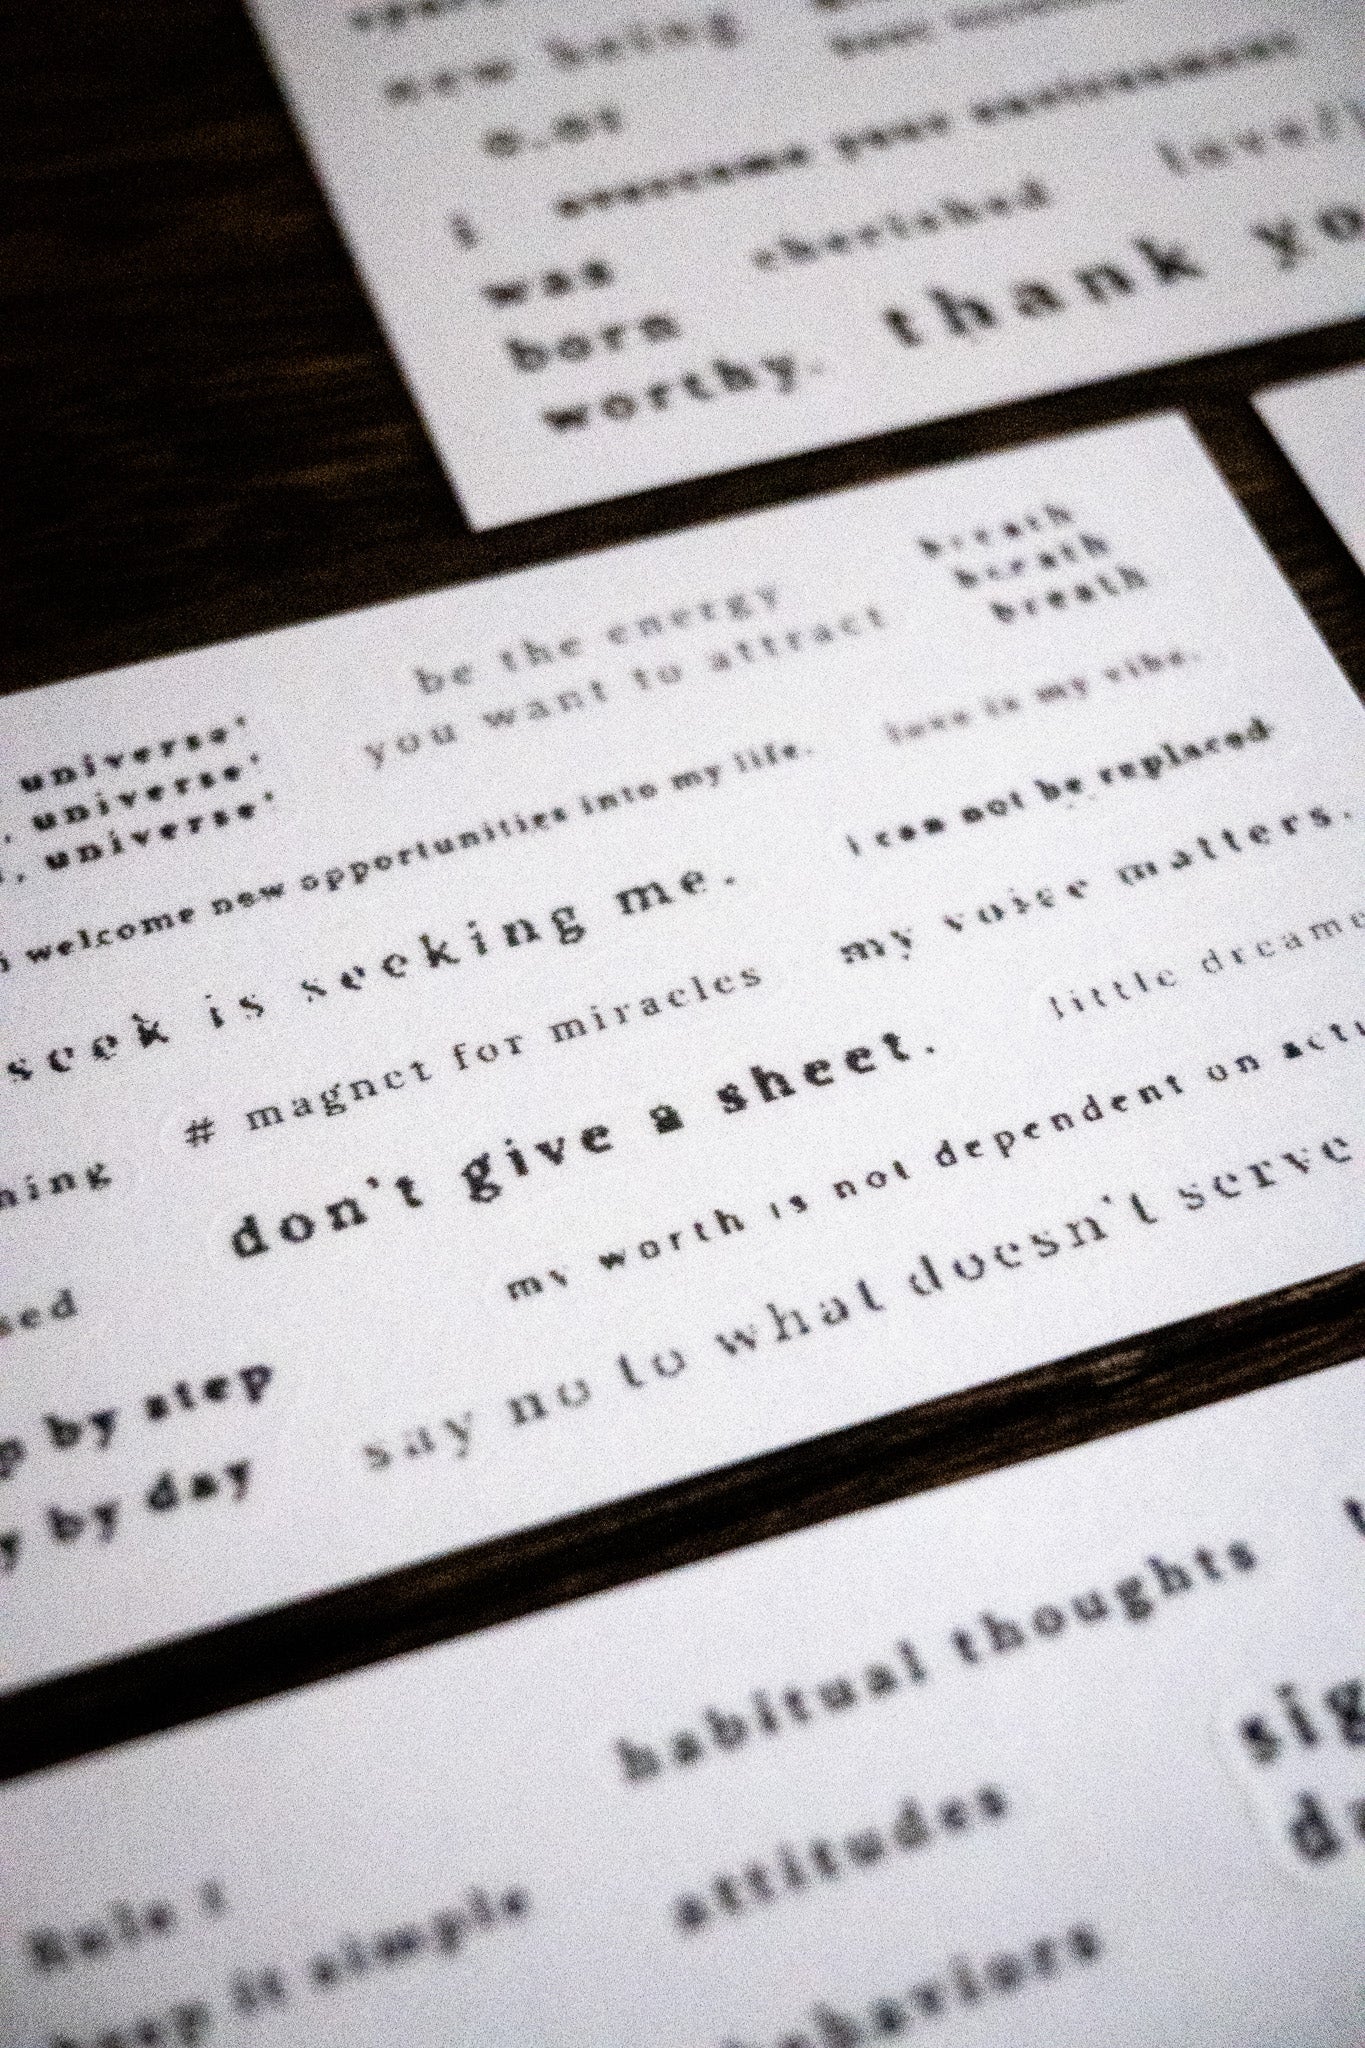 new being
i
was
born
worthy.
overcome your environment
cherished
lovely
thank yo
be the energy
you want to attract
breath
breath
breath
universe'
, universe'
, universe'
i welcome new opportunities into my life.
love is my vibe.
i can not be replaced
seek is seeking me.
my voice matters.
# magnet for miracles
little dreame
don't give a sheet.
my worth is not dependent on actu
hing
sed
say no to what doesn't serve
p by step
y by day
habitual thoughts
attitudes
behaviors
sig
Rule 1
keep it simple